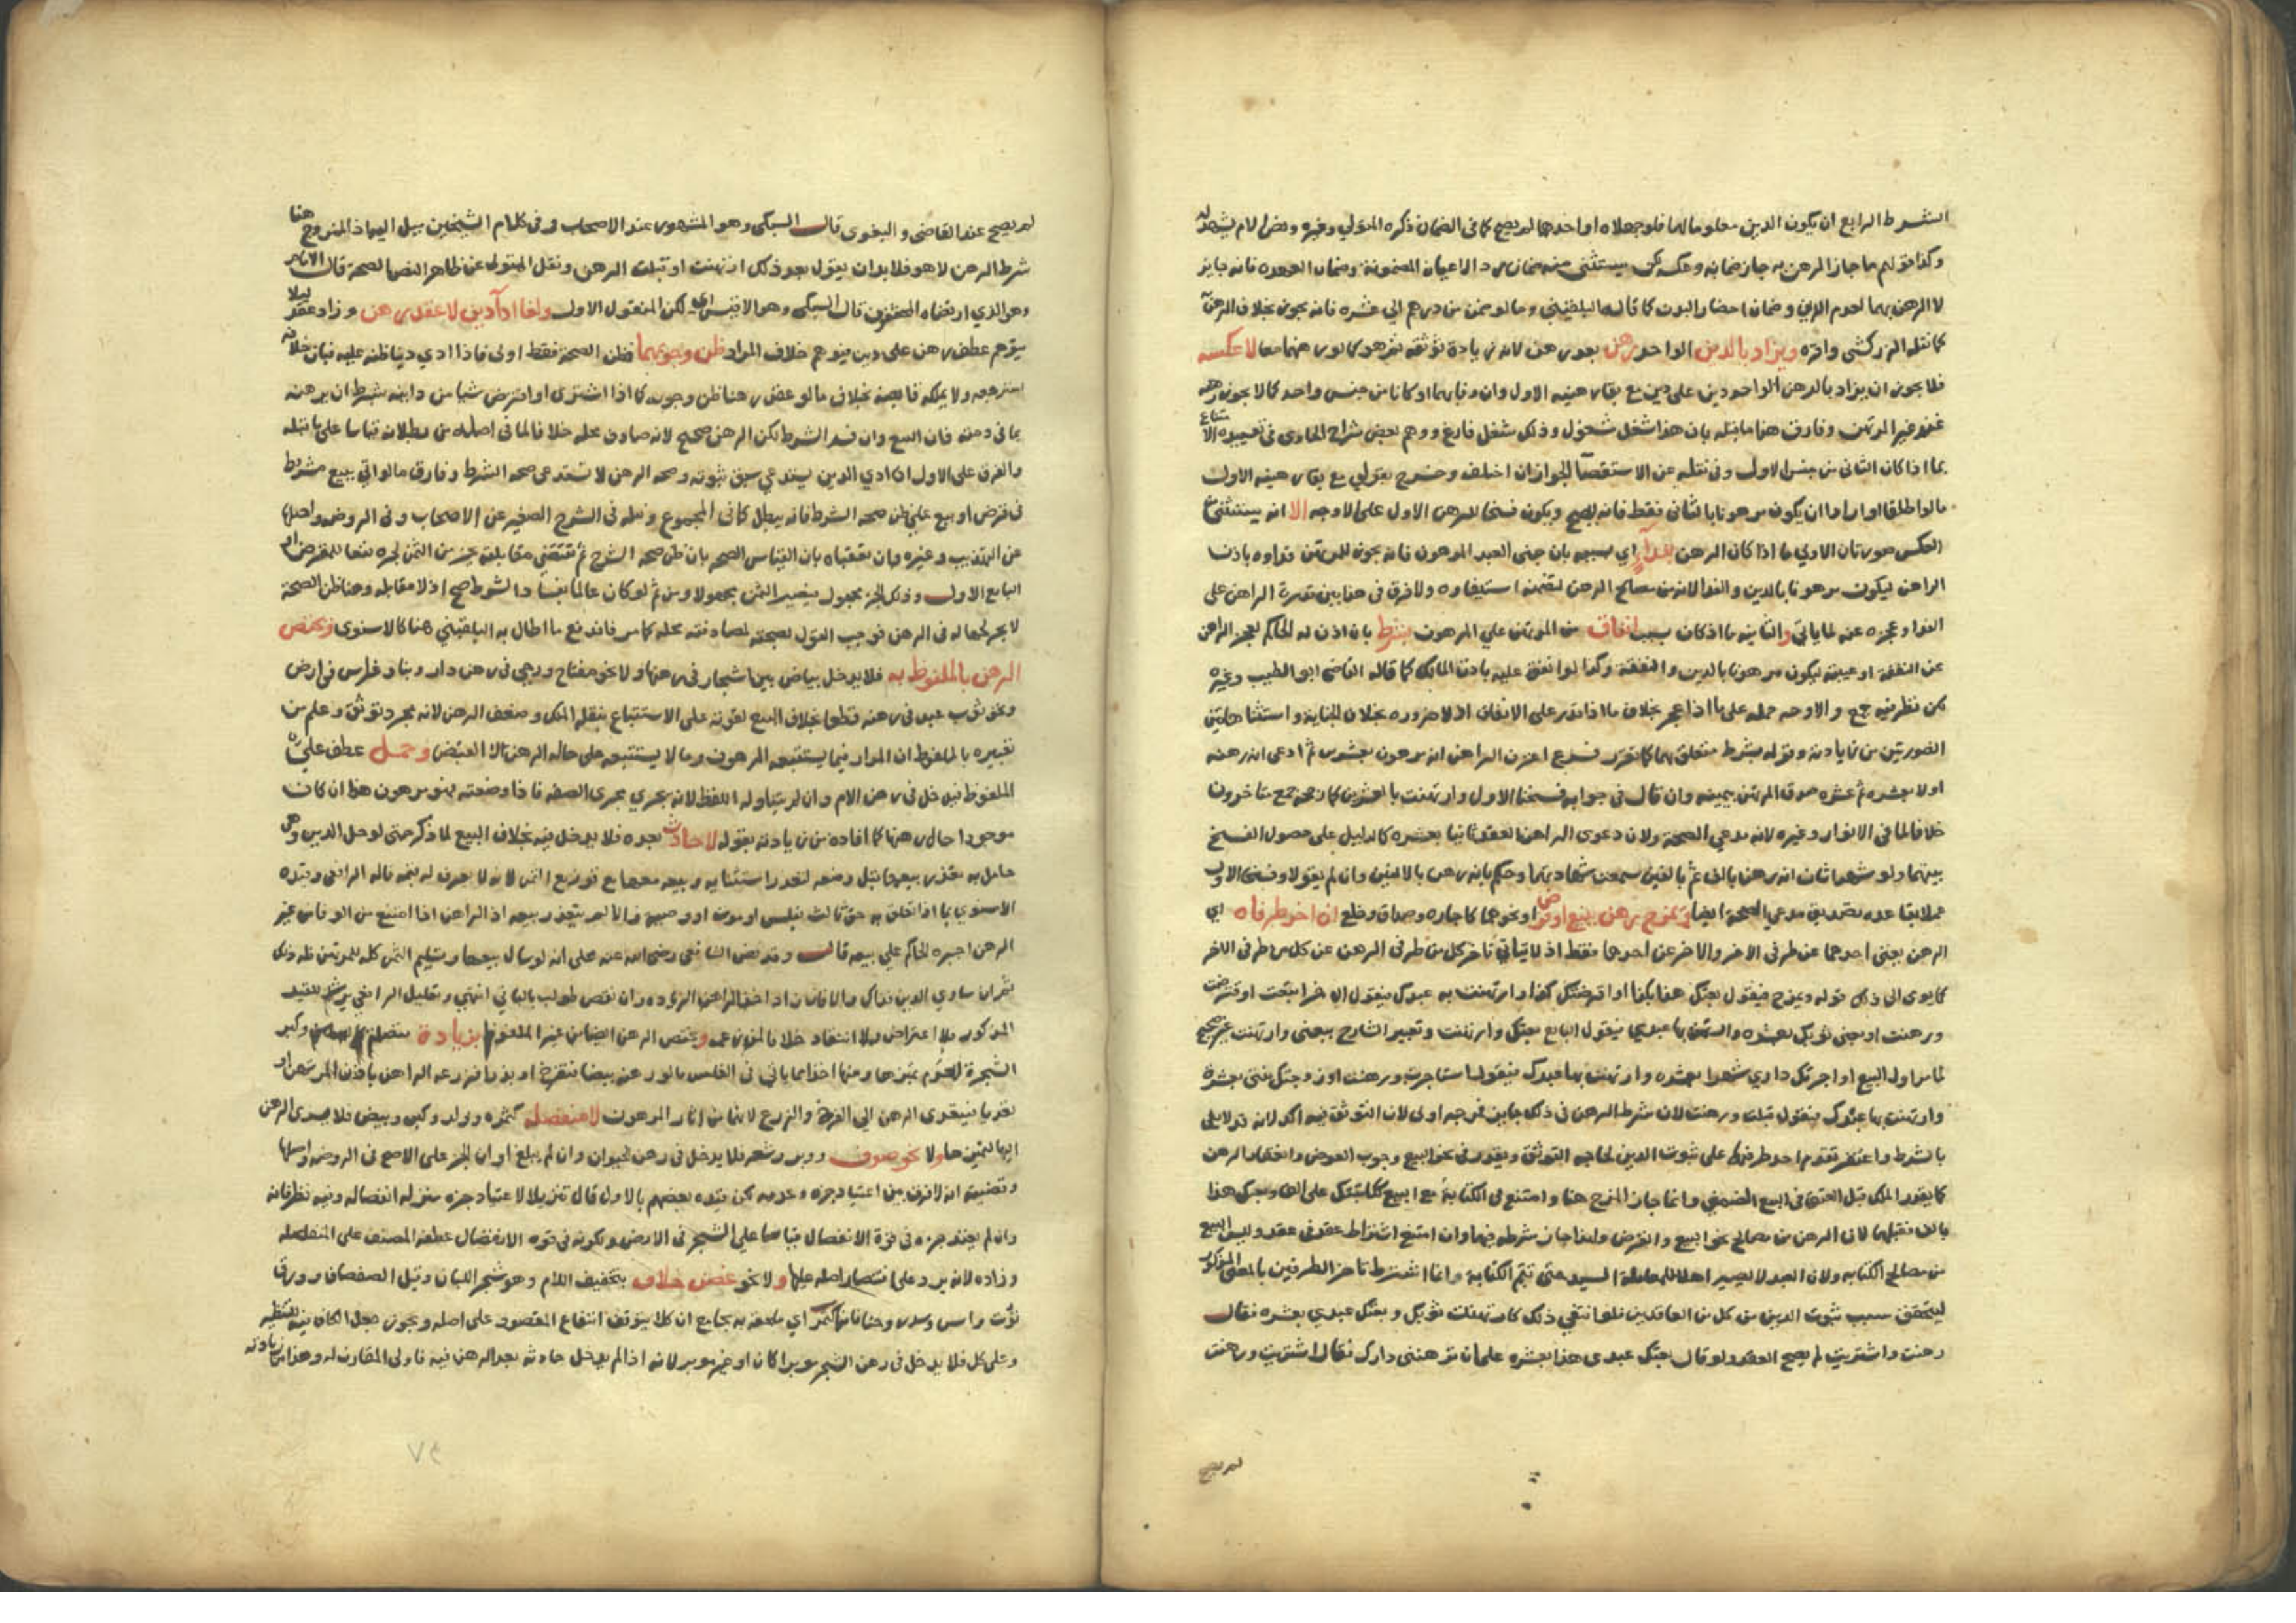 الشرط الرابع ان يكون الدين معلوما لهما فلو جهلاه او احدهما لم يصح كما في الضمان ذكره المتولي وغيره ونص الام يشهد له
وكذا قولهم ما جاز الرهن به جاز ضمانه وعكسه لكن يستثنى منه ضمان رد الاعيان المضمونة وضمان العهدة فانه جايز
لا الرهن بهما لعدم الدين وضمان احضار البدن كما قاله البلقيني وما لو ضمن من درهم الى عشره فانه يجوز بخلاف الرهن
كما نقله الزركشي واقره ويزاد بالدين الواحد رهن بعد رهن لانه زيادة توثقه فهو كما لو رهنهما معا لا عكسه
فلا يجوز ان يزاد بالرهن الواحد دين على دين مع بقاء رهنيه الاول وان وفا بهما او كانا من جنس واحد كما لا يجوز رهنه
عند غير المرتهن وفارق هذا ما قبله بان هذا شغل مشغول وذلك شغل فارغ ووهم بعض شراح الحاوي في تقييده الامتناع
بما اذا كان الثاني من جنس الاول وفي نقله عن الاستقصا الجواز ان اختلف وخرج بقولي مع بقاء رهنيه الاول
ما لو اطلقا او ارادا ان يكون مرهونا بالثاني فقط فانه يصح ويكون فسخا للرهن الاول على الاوجه الا انه يستثنى من
العكس صورتان الاولى ما اذا كان الرهن بفدآء اي بسببه بان جنى العبد المرهون فانه يجوز للمرتهن فداوه باذن
الراهن ليكون مرهونا بالدين والفدا لانه من مصالح الرهن لتضمنه استيفاوه ولا فرق في هذا بين قدرة الراهن على
الفدا وعجزه عنه لما ياتي والثانيه ما اذا كان بسبب انفاق من المرتهن على المرهون بشرط بان اذن له الحاكم لعجز الراهن
عن النفقة او غيبته ليكون مرهونا بالدين والنفقة وكذا لو انفق عليه باذن المالك كما قاله القاضي ابو الطيب وغيره
لكن نظر فيه جمع والاوجه حمله على ما اذا عجز بخلاف ما اذا قدر على الانفاق اذ لا ضروره بخلاف الجناية واستثنا هاتين
الصورتين من زيادته وقوله بشرط متعلق بهما كما تقرر فرع اعترف الراهن انه مرهون بعشرين ثم ادعى انه رهنه
اولا بعشره ثم عشره صدق المرتهن بيمينه وان قال في جوابه فسخنا الاول وارتهنت بالعشرين كما رجحه جمع متاخرون
خلافا لما في الانوار وغيره لانه مدعي الصحة ولان دعوى الراهن العقد ثانيا بعشره كالدليل على حصول الفسخ
بينهما ولو شهد اثنان انه رهن بالف ثم بالفين سمعت شهادتهما وحكم بانه رهن بالالفين وان لم يقولا وفسخ الاول
عملا بقاعدة تصديق مدعي الصحة ايضا ويمزج رهن ببيع او قرض او نحوهما كاجاره وصداق وخلع ان اخر طرفاه اي
الرهن بمعنى احدهما عن طرف الاخر والاخر عن احدهما فقط اذ لا يتاتى تاخر كل من طرفي الرهن عن كل من طرفي الاخر
كما يومي الى ذلك قوله ويمزج فيقول بعتك هذا بكذا او اقرضتك كذا وارتهنت به عبدك فيقول الاخر ابتعت او اقترضت
ورهنت او بعني ثوبك بعشره وارتهن بها عبدي فيقول البايع بعتك وارتهنت وتعبير الشارح ببعني وارتهنت غير صحيح
لما مر اول البيع او اجرتك داري شهرا بعشره وارتهنت بها عبدك فيقول استاجرت ورهنت او زوجتك بنتي بعشره
وارتهنت بها عبدك فيقول قبلت ورهنت لان شرط الرهن في ذلك جايز فمزجه اولى لان التوثق فيه اكد لانه قد لا يفي
بالشرط واغتفر تقدم احد طرفيه على ثبوت الدين لحاجه التوثق ويقدر في نحو البيع وجوب العوض وانعقاد الرهن
كما يقدر الملك قبل العتق في البيع الضمني وانما جاز المزج هنا وامتنع في الكتابة مع البيع ككاتبتك على الف وبعتك هذا
بالف فقبلهما لان الرهن من مصالح نحو البيع والقرض ولهذا جاز شرطه فيهما وان امتنع اشتراط عقد في عقد وليس البيع
من مصالح الكتابه ولان العبد لا يصير اهلا لمعاملة السيد حتى تتم الكتابة وانما اشترط تاخر الطرفين بالمعنى المذكور
ليتحقق سبب ثبوت الدين من كل من العاقدين فلو انتفي ذلك كارتهنت ثوبك وبعتك عبدي بعشره فقال
رهنت واشتريت لم يصح العقد ولو قال بعتك عبدي هذا بعشره على ان ترهنني دارك فقال اشتريت ورهنت
لم يصح
لم يصح عند القاضي والبغوي قال السبكي وهو المشهور عند الاصحاب وفي كلام الشيخين ميل اليه اذ المشروع هنا
شرط الرهن لا هو فلا بد ان يقول بعد ذلك ارتهنت او قبلت الرهن ونقل المتولي عن ظاهر النص الصحة قال الامام
وهو الذي ارتضاه المحققون قال السبكي وهو الاقيس اي لكن المنقول الاول ولغا ادآء دين لا عقد رهن وزاد عقد ليلا
يتوهم عطف رهن على دين فيوهم خلاف المراد ظن وجوبهما فظن الصحة فقط اولى فاذا ادي دينا ظنه عليه فبان خلافه
استرجعه ولا يملكه قابضه بخلاف ما لو عقد رهنا ظن وجوبه كما اذا اشترى او اقترض شيا من داينه بشرط ان يرهنه
بما في ذمته فان البيع وان فسد الشرط لكن الرهن صحيح لانه صادف محله خلافا لما في اصله من بطلانه قياسا على ما قبله
والفرق على الاول ان ادي الدين يستدعي سبق ثبوته وصحه الرهن لا تستدعي صحه الشرط وفارق ما لو اتى ببيع مشروط
في قرض او بيع على ظن صحه الشرط فانه يبطل كما في المجموع ونقله في الشرح الصغير عن الاصحاب وفي الروضه واصلها
عن التهذيب وغيره وان تعقباه بان القياس الصحه بان ظن صحه الشرح ثم تقتضي مقابلته بجزء من الثمن لجره نفعا للمقرض او
البايع الاول وذلك الجزء مجهول فيصير الثمن مجهولا ومن ثم لو كان عالما بفساد الشرط صح اذ لا مقابله وهنا ظن الصحة
لا يجر لجهاله في الرهن فوجب القول بصحته لمصادفته محله كما مر فاندفع ما اطال به البلقيني هنا كالاسنوي ويختص
الرهن بالملفوظ به فلا يدخل بياض بين اشجار في رهنها ولا نحو مفتاح ورحى في رهن دار وبناء وغراس في ارض
ونحو ثوب عبد في رهنه قطعا بخلاف البيع لقوته على الاستتباع بنقله الملك وضعف الرهن لانه مجرد توثق وعلم من
تعبيره بالملفوظ ان المراد فيما يستتبعه المرهون وما لا يستتبعه على حاله الرهن لا القبض وحمل عطف على
الملفوظ فيدخل في رهن الام وان لم يتناوله اللفظ لانه يجري مجرى الصفه فاذا وضعته فهو مرهون هذا ان كان
موجودا حال رهنها كما افاده من زيادته بقوله لا حادث بعده فلا يدخل فيه بخلاف البيع لما ذكر حتى لو حل الدين وهي
حامل به تعذر بيعها قبل وضعه لتعذر استثنايه وبيعه معها مع توزيع الثمن لانه لا تعرف له قيمه قاله الرافعي وقيده
الاسنوي بما اذا تعلق به حق ثالث بفلس او موت او وصيه والا لم يتعذر بيعه اذ الراهن اذا امتنع من الوفا من غير
الرهن اجبره الحاكم على بيعه قال وقد نص الشافعي رضي الله عنه على انه لو سال بيعها وتسليم الثمن كله للمرتهن فله ذلك
ثم ان ساوى الدين فذاك والا فان زاد اخذ الراهن الزياده وان نقص طولب بالباقي انتهى وتعليل الرافعي يرشد للقيد
المذكور فلا اعتراض ولا انتقاد خلافا لمن زعمه ويختص الرهن ايضا من غير الملفوظ بزيادة متصله كسمن وكبر
الشجرة لعدم تميزها ومنها اخذا مما ياتي في الفلس ما لو رهنه بيضا فتفرخ او بذرا فزرعه الراهن باذن المرتهن او
تعديا فيتعدى الرهن الى الفرخ والزرع لانهما من اثار المرهون لا منفصله كثمره وولد وكسب وبيض فلا يتعدى الرهن
اليها لتميزها ولا نحو صوف ووبر وشعر فلا يدخل في رهن الحيوان وان لم يبلغ اوان الجز على الاصح في الروضه واصلها
وقضيته انه لا فرق بين اعتياد جزه وعدمه لكن قيده بعضهم بالاول قال تنزيلا لاعتياد جزه منزله انفصاله وفيه نظر فانه
وان لم يعتد جزه في قوة الانفصال قياسا على الشجر في الارض ولكونه في قوه الانفصال عطفه المصنف على المنفصله
وزاده لانه يرد على اقتصار اصله عليها ولا نحو غصن خلاف بتخفيف اللام وهو شجر البان وقيل الصفصاف وورق
توت واس وسدر وحنا فانها كثمر اي ملحقه به بجامع ان كلا يتوقف انتفاع المقصود على اصله ويجوز جعل الكاف فيه للتنظير
وعلى كل فلا يدخل في رهن الشجر موبرا كان او غير موبر لانه اذا لم يدخل حادثه بعد الرهن فيه فاولى المقارن له وهذا من زيادته